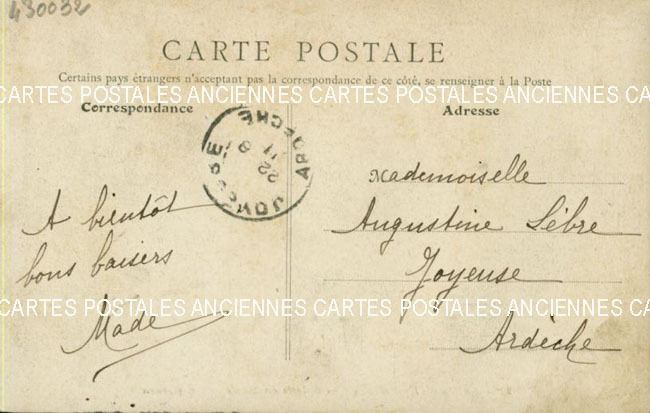 430032
CARTE POSTALE
Certains pays étrangers n'acceptant pas la correspondance de ce côté, se renseigner à la Poste
CARTES POSTALES ANCIENNES CARTES POSTALES ANCIENNES CARTES
Correspondance
Adresse
JOYEUSE
ARDECHE
22
Mademoiselle
A bientôt
Augustine Lèbre
bons baisers
Joyeuse
CARTES POSTALES ANCIENNES CARTES POSTALES ANCIENNES CARTES
Made
Ardèche